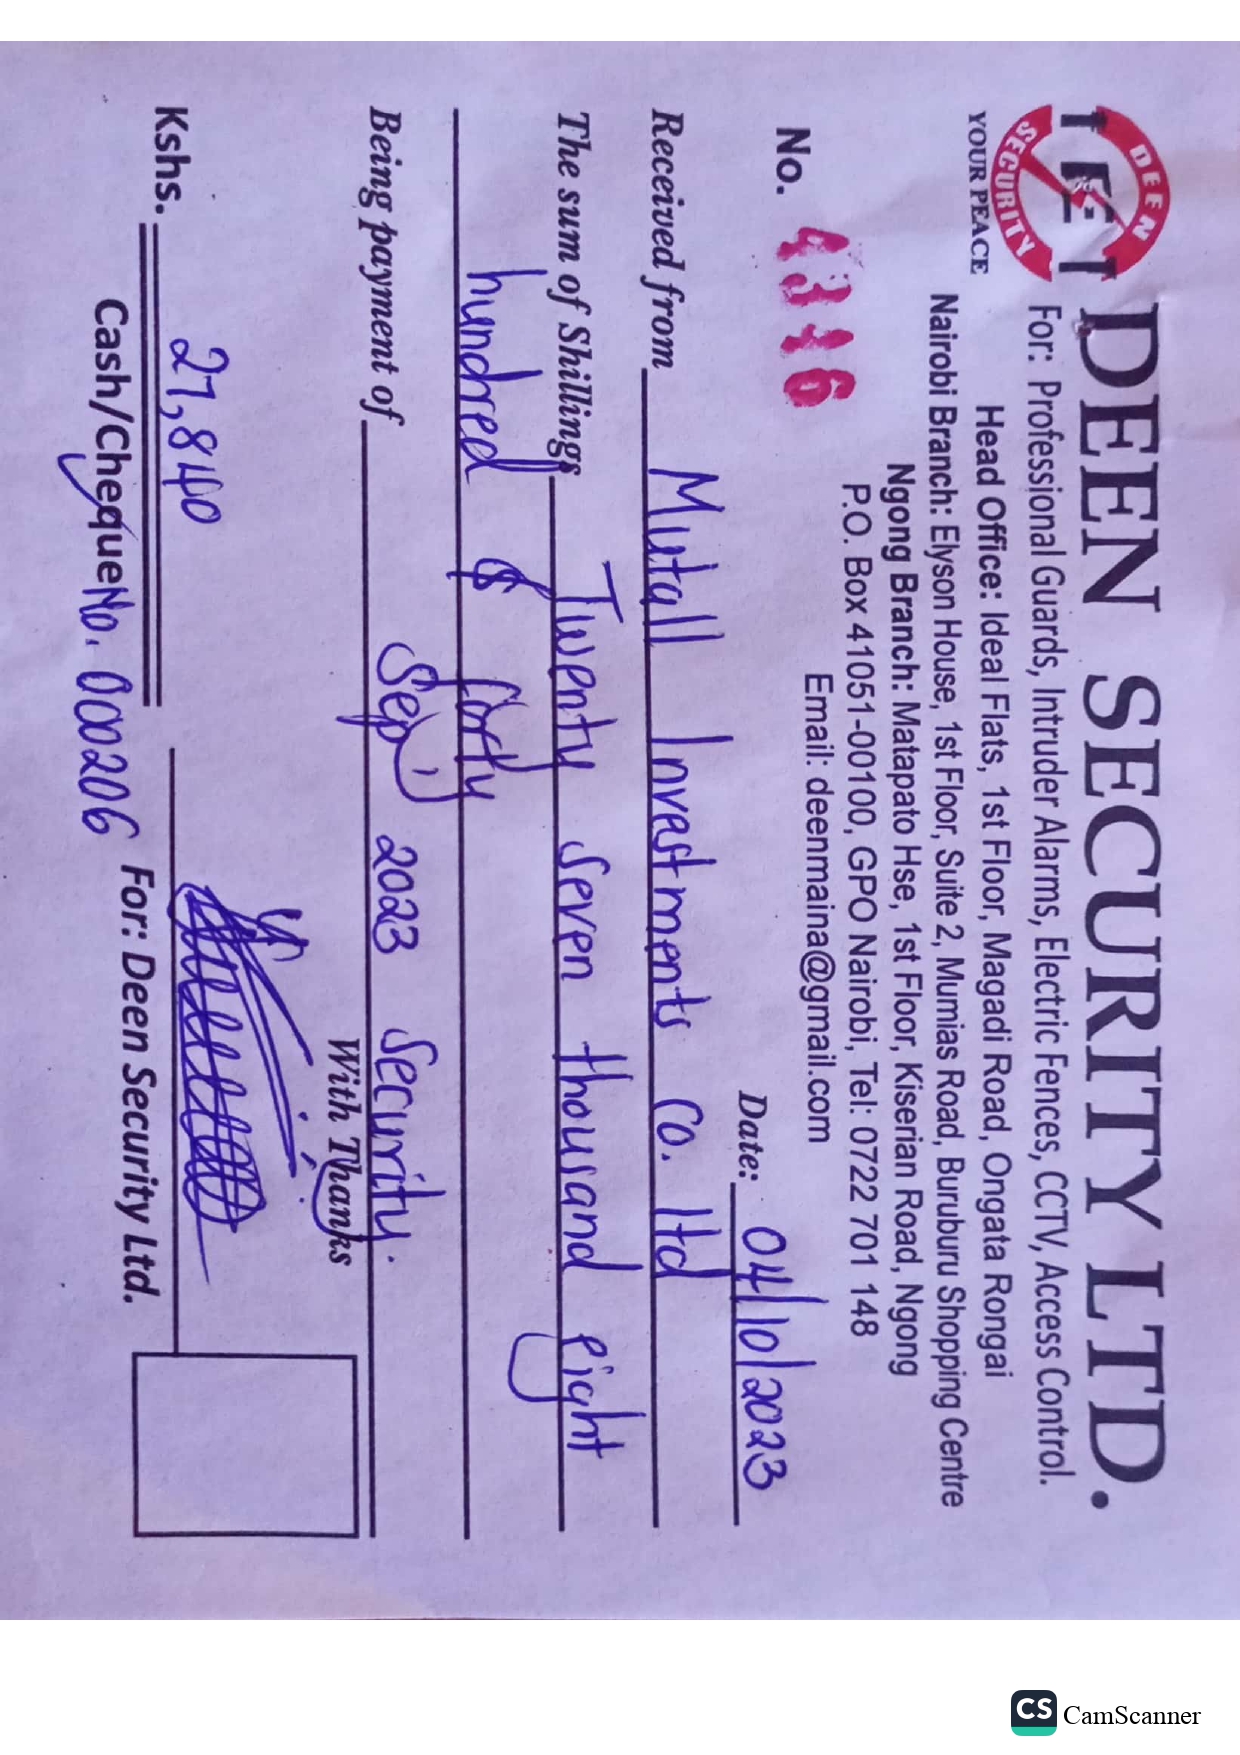 DEEN SECURITY LTD.
DEEN
SECURITY
YOUR PEACE
For: Professional Guards, Intruder Alarms, Electric Fences, CCTV, Access Control.
Head Office: Ideal Flats, 1st Floor, Magadi Road, Ongata Rongai
Nairobi Branch: Elyson House, 1st Floor, Suite 2, Mumias Road, Buruburu Shopping Centre
Ngong Branch: Matapato Hse, 1st Floor, Kiserian Road, Ngong
P.O. Box 41051-00100, GPO Nairobi, Tel: 0722 701 148
Email: deenmaina@gmail.com
No. Date: 04/10/2023
Received from Mutall Investments Co. ltd
The sum of Shillings Twenty seven thousand eight
hundred & forty
Being payment of Sep, 2023 security.
With Thanks
Kshs. 27,840
Cash/Cheque No. 000206 For: Deen Security Ltd.
CS CamScanner